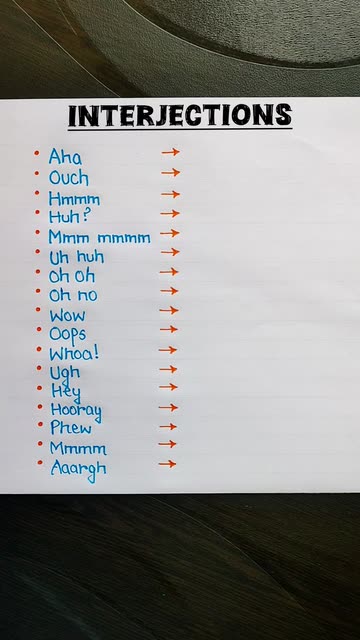 INTERJECTIONS
• Aha →
• Ouch →
• Hmmm →
• Huh? →
• Mmm mmmm →
• Uh huh →
• Oh oh →
• Oh no →
• Wow →
• Oops →
• Whoa! →
• Ugh →
• Hey →
• Hooray →
• Phew →
• Mmmm →
• Aaargh →